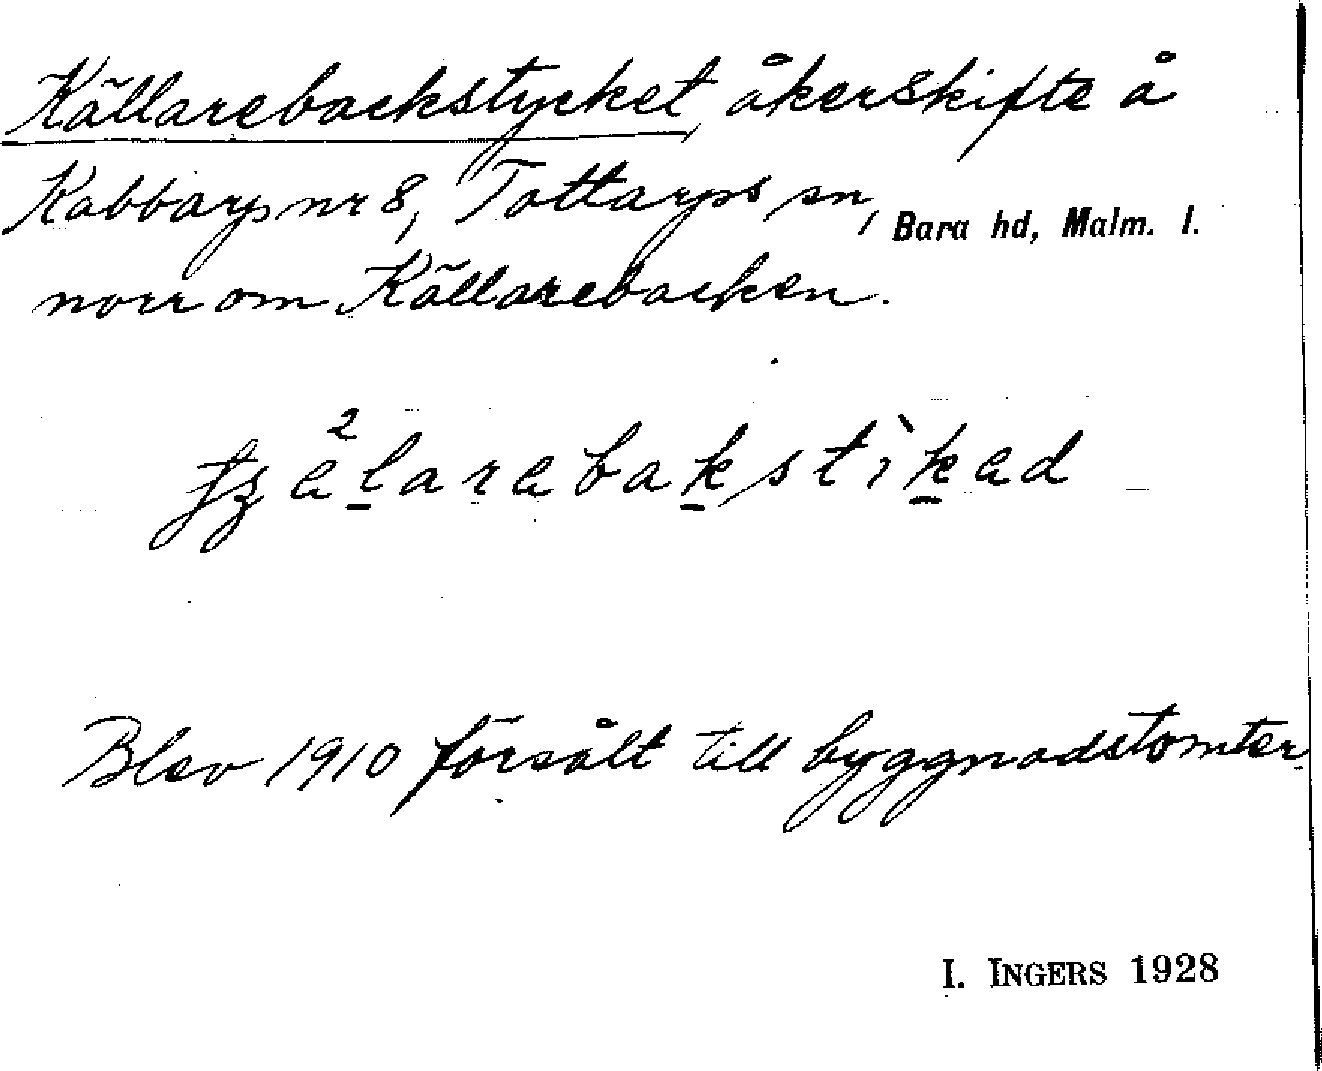 Källarebackstycket, åkerskifte å
Kabbarp nr 8, Tottarps sn, Bara hd, Malm. l.
norr om Källarebacken.
Blev 1910 försålt till byggnadstomter
I. INGERS 1928